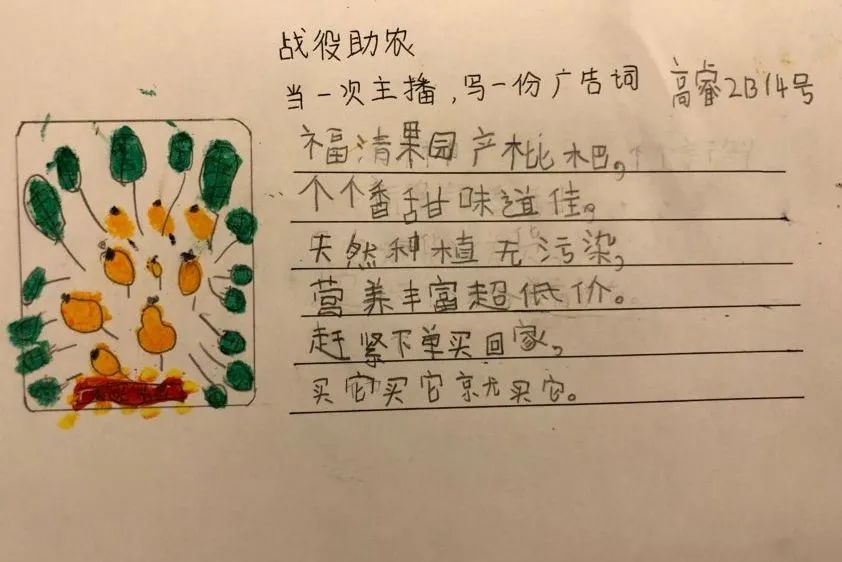 战役助农
当一次主播,写一份广告词 高睿2B14号
福清果园产枇杷,
个个香甜味道佳。
天然种植无污染,
营养丰富超低价。
赶紧下单买回家,
买它买它就买它。